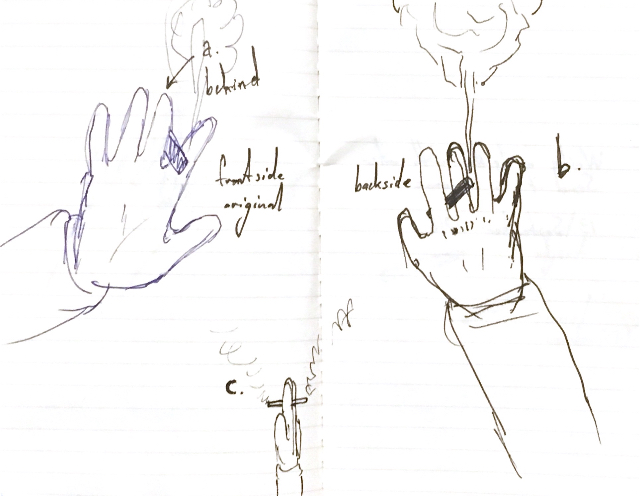 a.
behind
frontside
original
backside
b.
c.